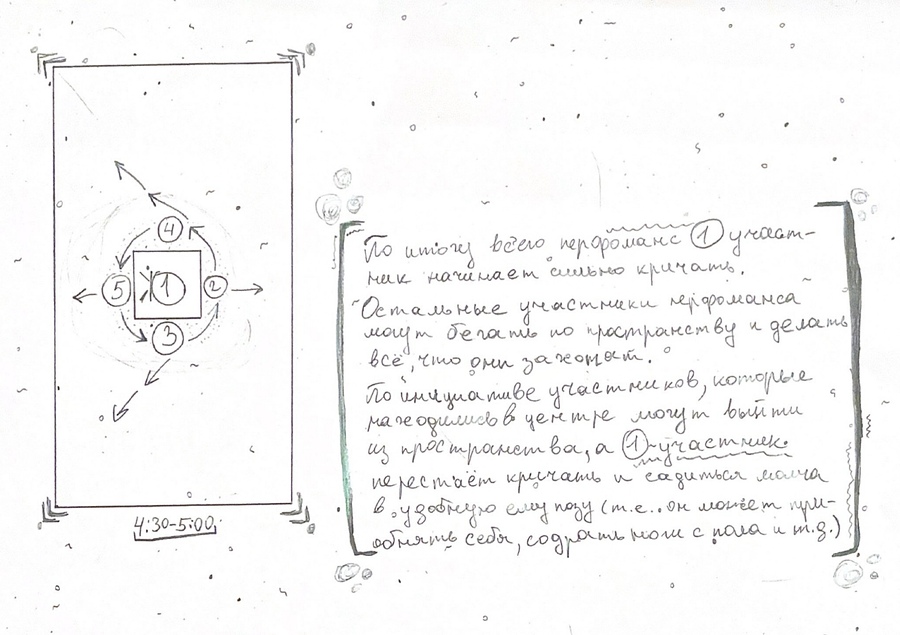 4
5
1
2
3
4:30-5:00
По итогу всего перфоманс 1 участ-
ник начинает сильно кричать.
Остальные участники перфоманса
могут бегать по пространству и делать
всё, что они захотят.
По инициативе участников, которые
находились в центре могут выйти
из пространства, а 1-участник
перестаёт кричать и садиться молча
в удобную ему позу (т.е. он может при-
обнять себя, содрать ноги с пола и т.д.)